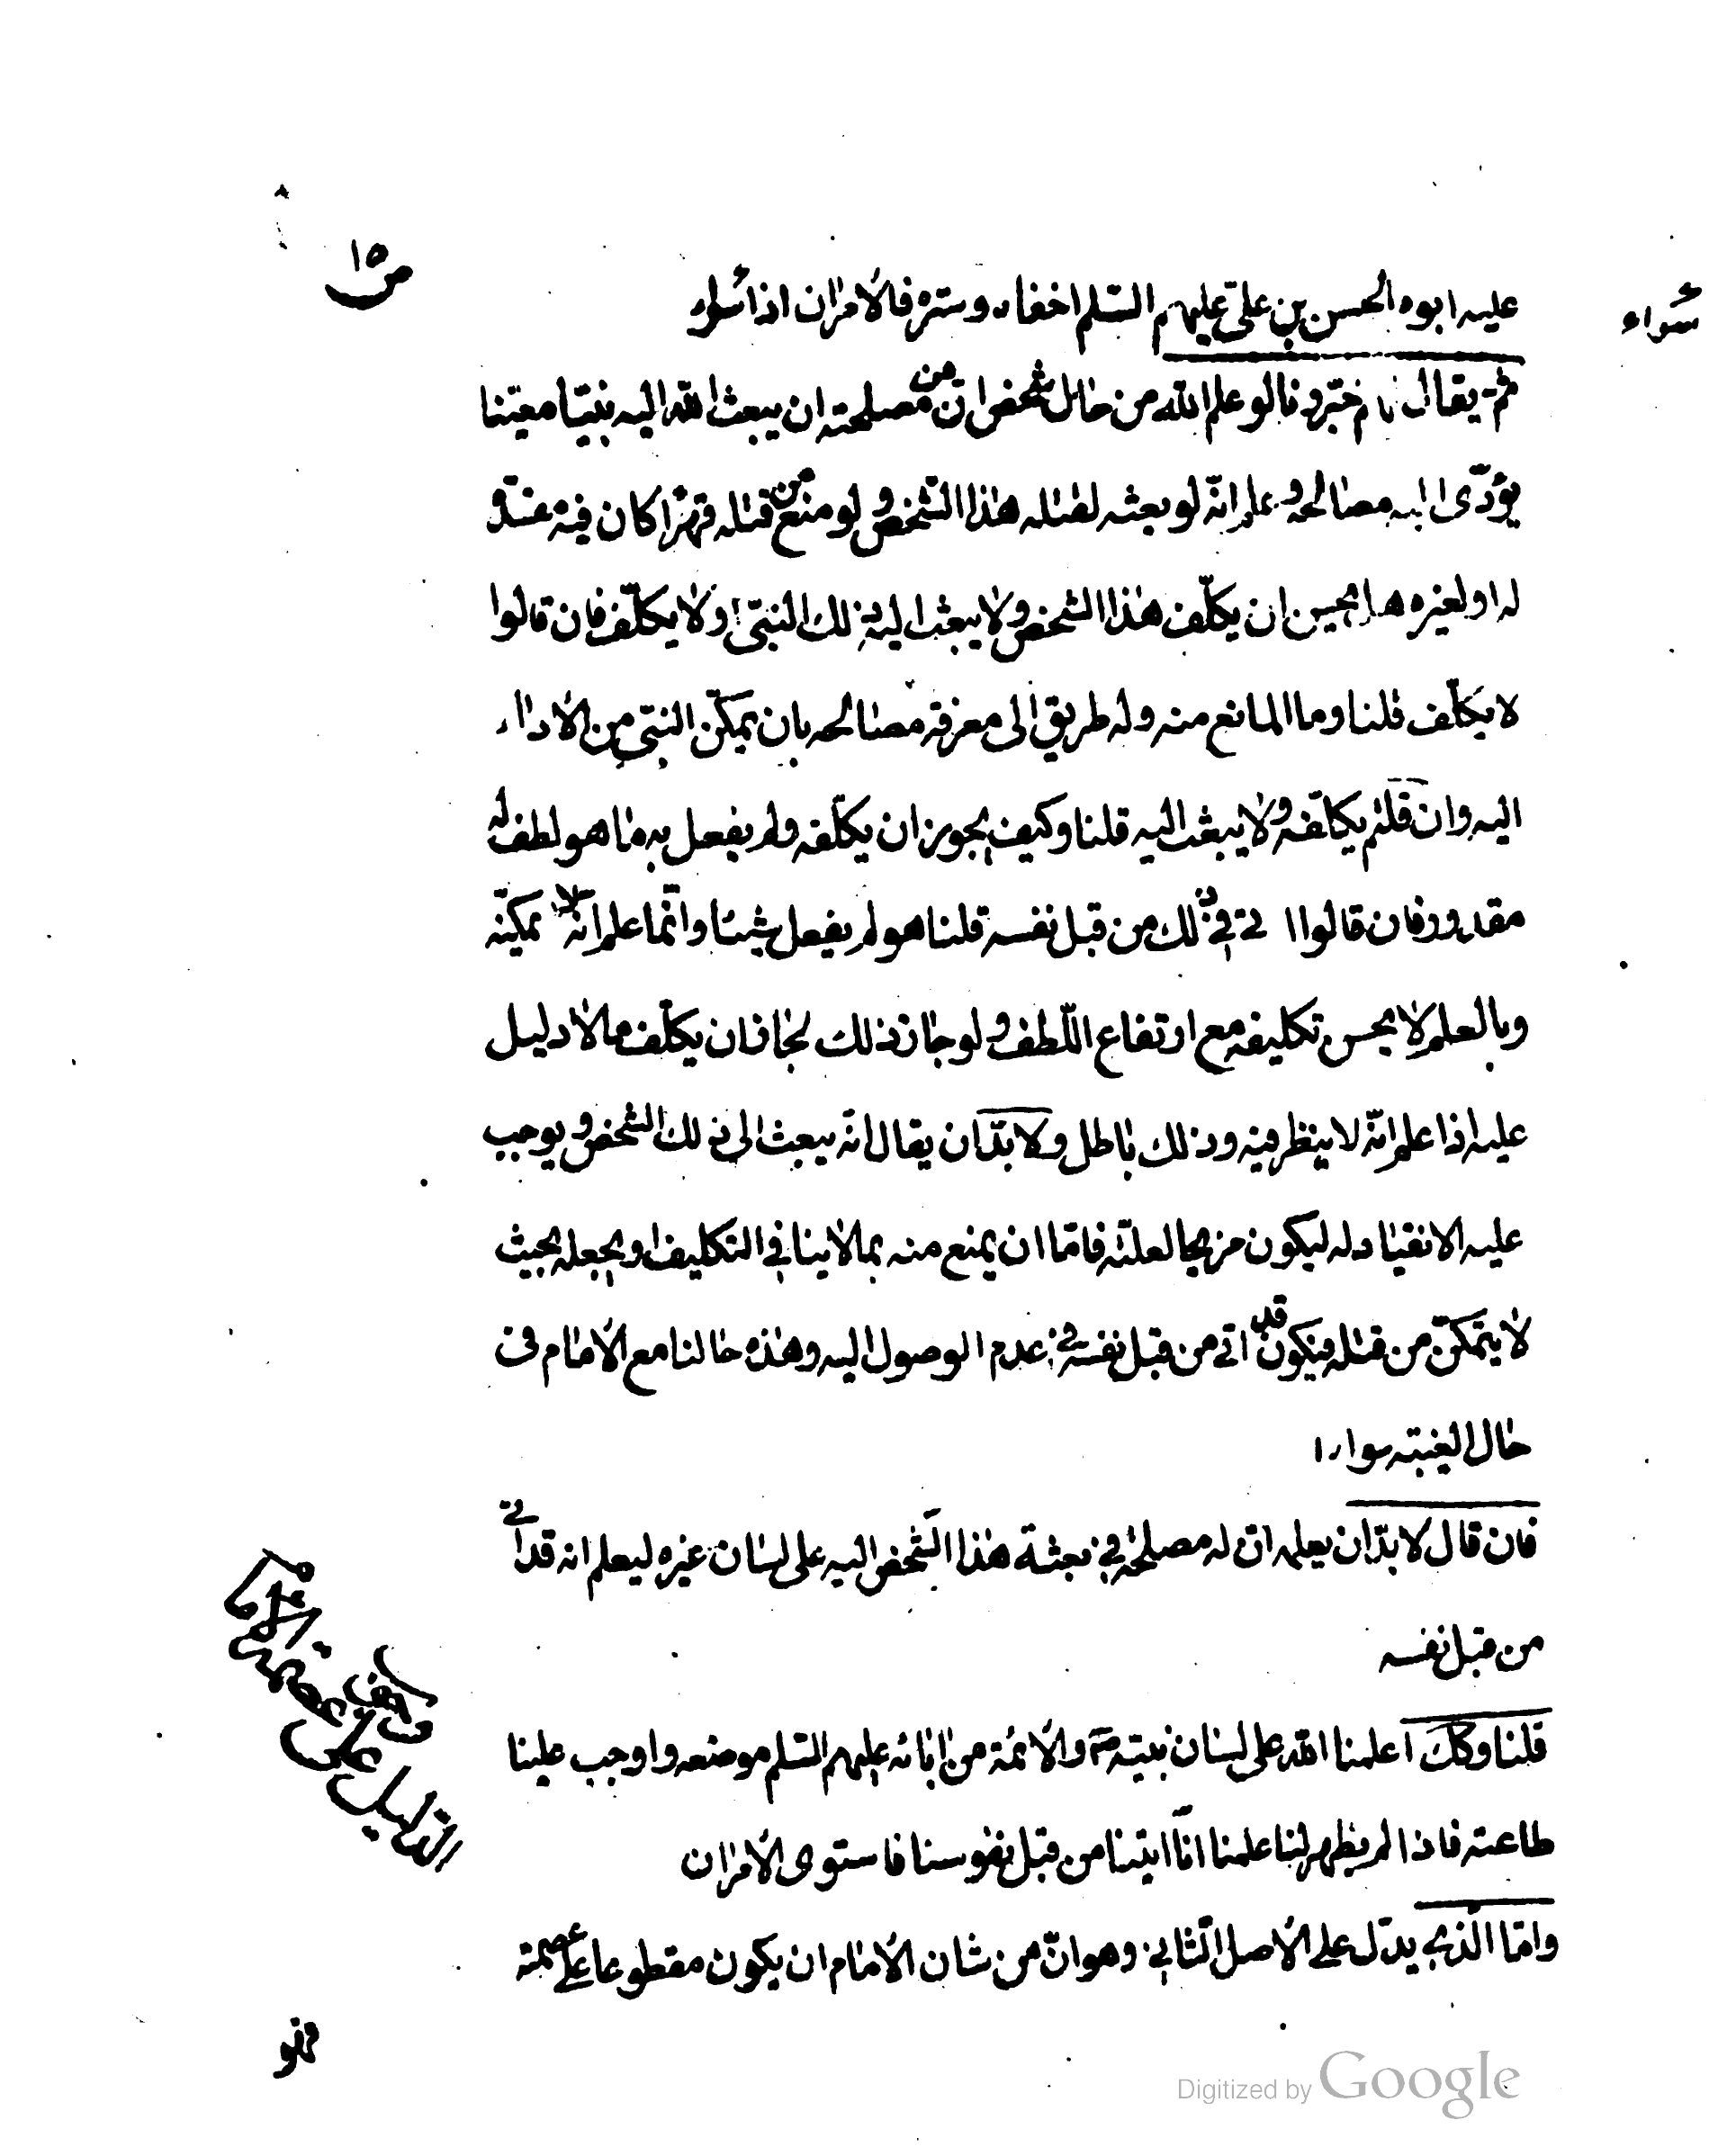 ص ١٥
عليه ابوه الحسن بن علي عليهم السّلم اخفاه وستره فالأمران اذا سواء
سواء
ثمّ يقال لهم خبّرونا لو علم الله من حال شخص انّ من مصلحته ان يبعث الله اليه نبيّا معيّنا
يؤدّى اليه مصالحه وعلم انّه لو بعثه لقتله هذا الشّخص ولو منع من قتله قهرا كان فيه مفسدة
له او لغيره هل يحسن ان يكلّف هذا الشّخص ولا يبعث اليه ذلك النبىّ او لا يكلّف فان قالوا
لا يكلّف قلنا وما المانع منه وله طريق الى معرفة مصالحه بان يمكّن النبىّ من الأداء
اليه وان قلتم يكلّفه ولا يبعث اليه قلنا وكيف يجوز ان يكلّفه ولم يفعل به ما هو لطف له
مقدور فان قالوا اتى فى ذلك من قبل نفسه قلنا هو لم يفعل شيئا وانّما علم انّه لا يمكّنه
وبالعلم لا يحسن تكليفه مع ارتفاع اللّطف ولو جاز ذلك لجاز ان يكلّف ما لا دليل
عليه اذا علم انّه لا ينظر فيه وذلك باطل ولا بدّ ان يقال انّه يبعث الى ذلك الشّخص ويوجب
عليه الانقياد له ليكون مزيحا لعلّته فامّا ان يمنع منه بما لا ينافى التكليف او يجعله بحيث
لا يتمكّن من قتله فيكون قد اتى من قبل نفسه فى عدم الوصول اليه وهذه حالنا مع الأمام فى
حال الغيبة سواء
فان قال لا بدّ ان يعلم انّ له مصلحة فى بعثة هذا الشّخص اليه على لسان غيره ليعلم انه قد اتى
من قبل نفسه
قلنا وكك اعلمنا الله على لسان نبيّه ص والأئمة من ابائه عليهم السّلم موضعه واوجب علينا
طاعته فاذا لم يظهر لنا علمنا انّا اتينا من قبل نفوسنا فاستوى الأمران
وامّا الّذى يدلّ على الأصل الثّانى وهو انّ من شان الأمام ان يكون مقطوعا على عصمته
الدليل على عصمة الامام
فهو
Digitized by Google